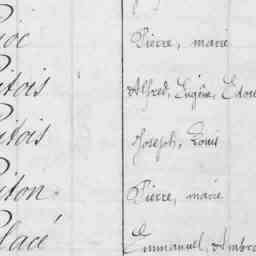 Pierre, marie
Alfred, Eugène, Edou
Joseph, Louis
Piton Pierre, marie
Placé Emmanuel, Ambro